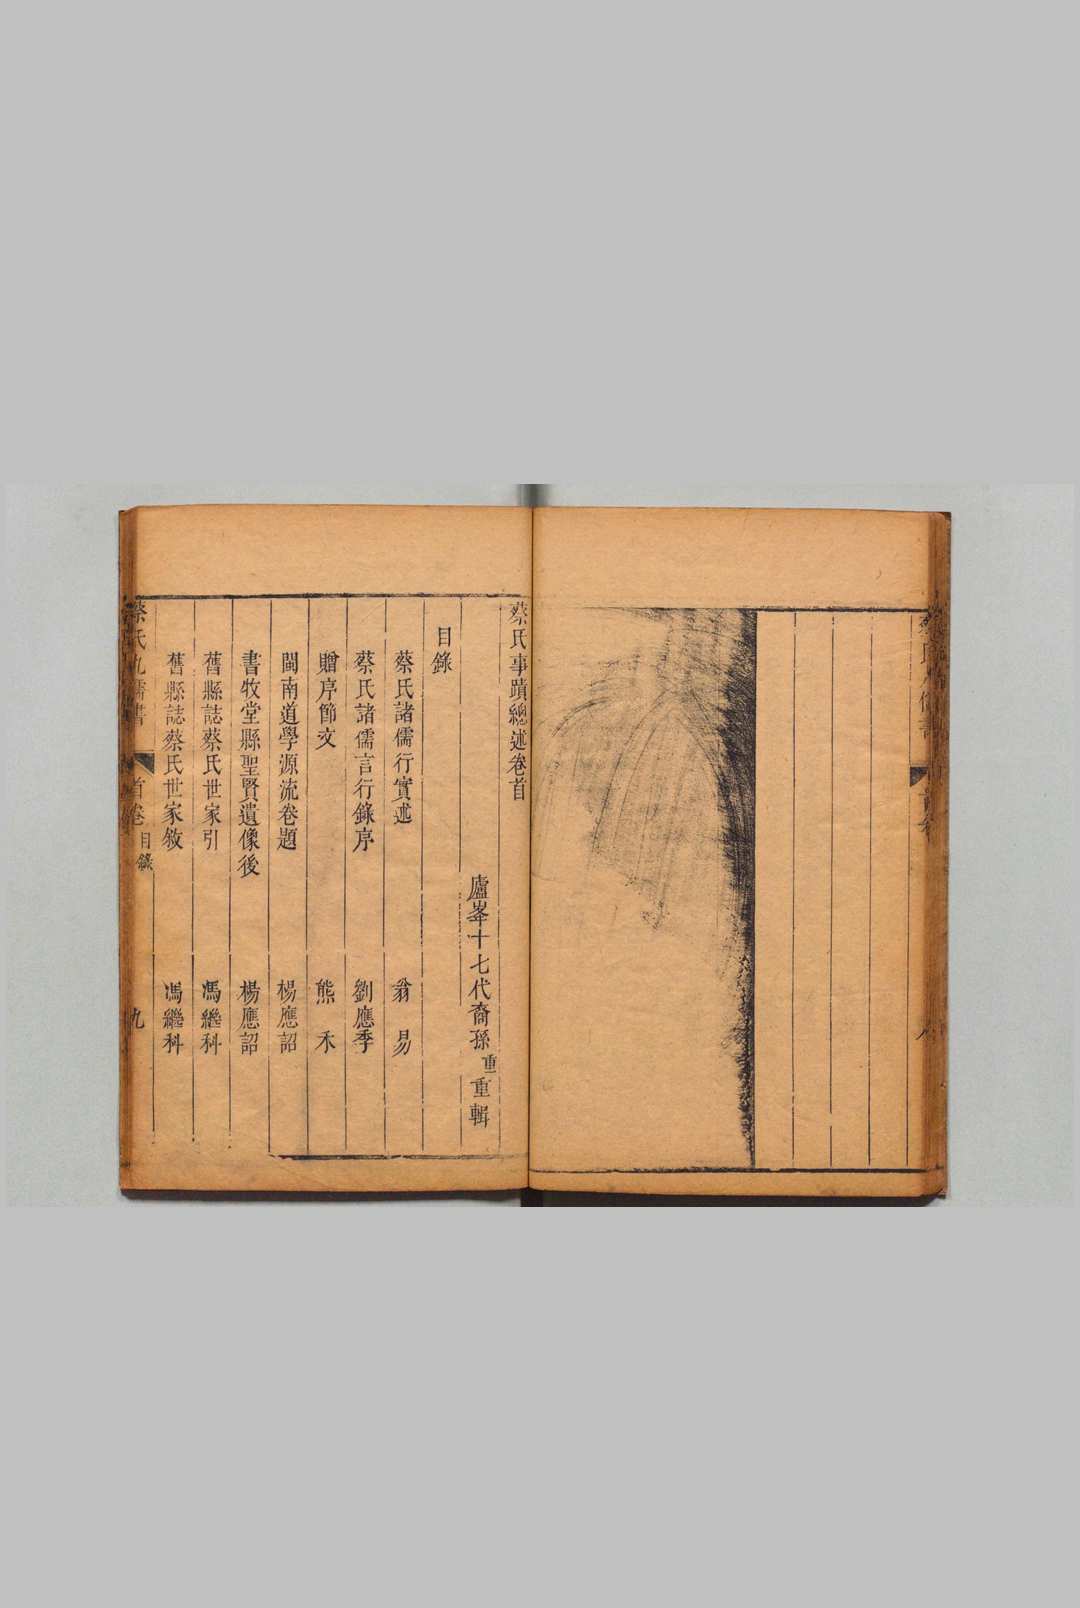 蔡氏事蹟總述卷首
廬峯十七代裔孫重重輯
目錄
蔡氏諸儒行實述 翁易
蔡氏諸儒言行錄序 劉應季
贈序節文 熊禾
閩南道學源流卷題 楊應詔
書牧堂縣聖賢遺像後 楊應詔
舊縣誌蔡氏世家引 馮繼科
舊縣誌蔡氏世家敘 馮繼科
蔡氏九儒書 首卷 目錄 九